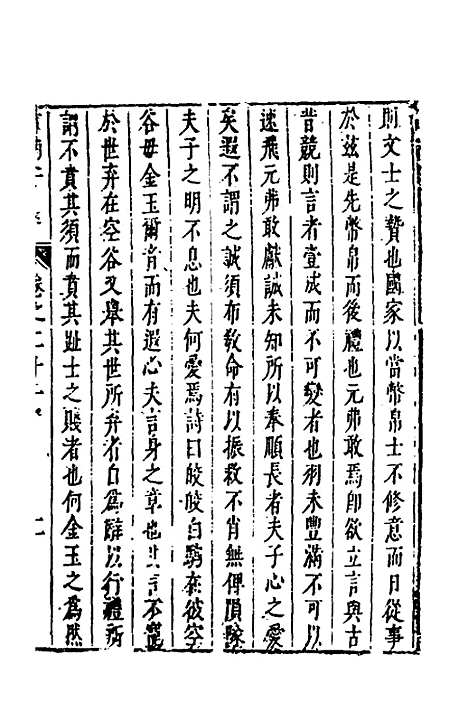 則文士之贄也國家以當幣帛士不修意而日從事
於茲是先幣帛而後禮也元弗敢焉即欲立言與古
昔競則言者壹成而不可變者也羽未豐滿不可以
速飛元弗敢獻誠未知所以奉順長者夫子心之愛
矣遐不謂之誠須布敎命有以振救不肖無俾隕隊
夫子之明不息也夫何愛焉詩曰皎皎白駒在彼空
谷毋金玉爾音而有遐心夫言身之章也其言不
於世弃在空谷又舉其世所弃者自為辭以行禮所
謂不賁其須而賁其趾士之賤者也何金玉之為然
卷之二十二
二